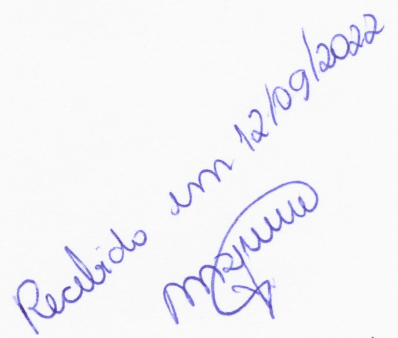 Recebido em 12/09/2022